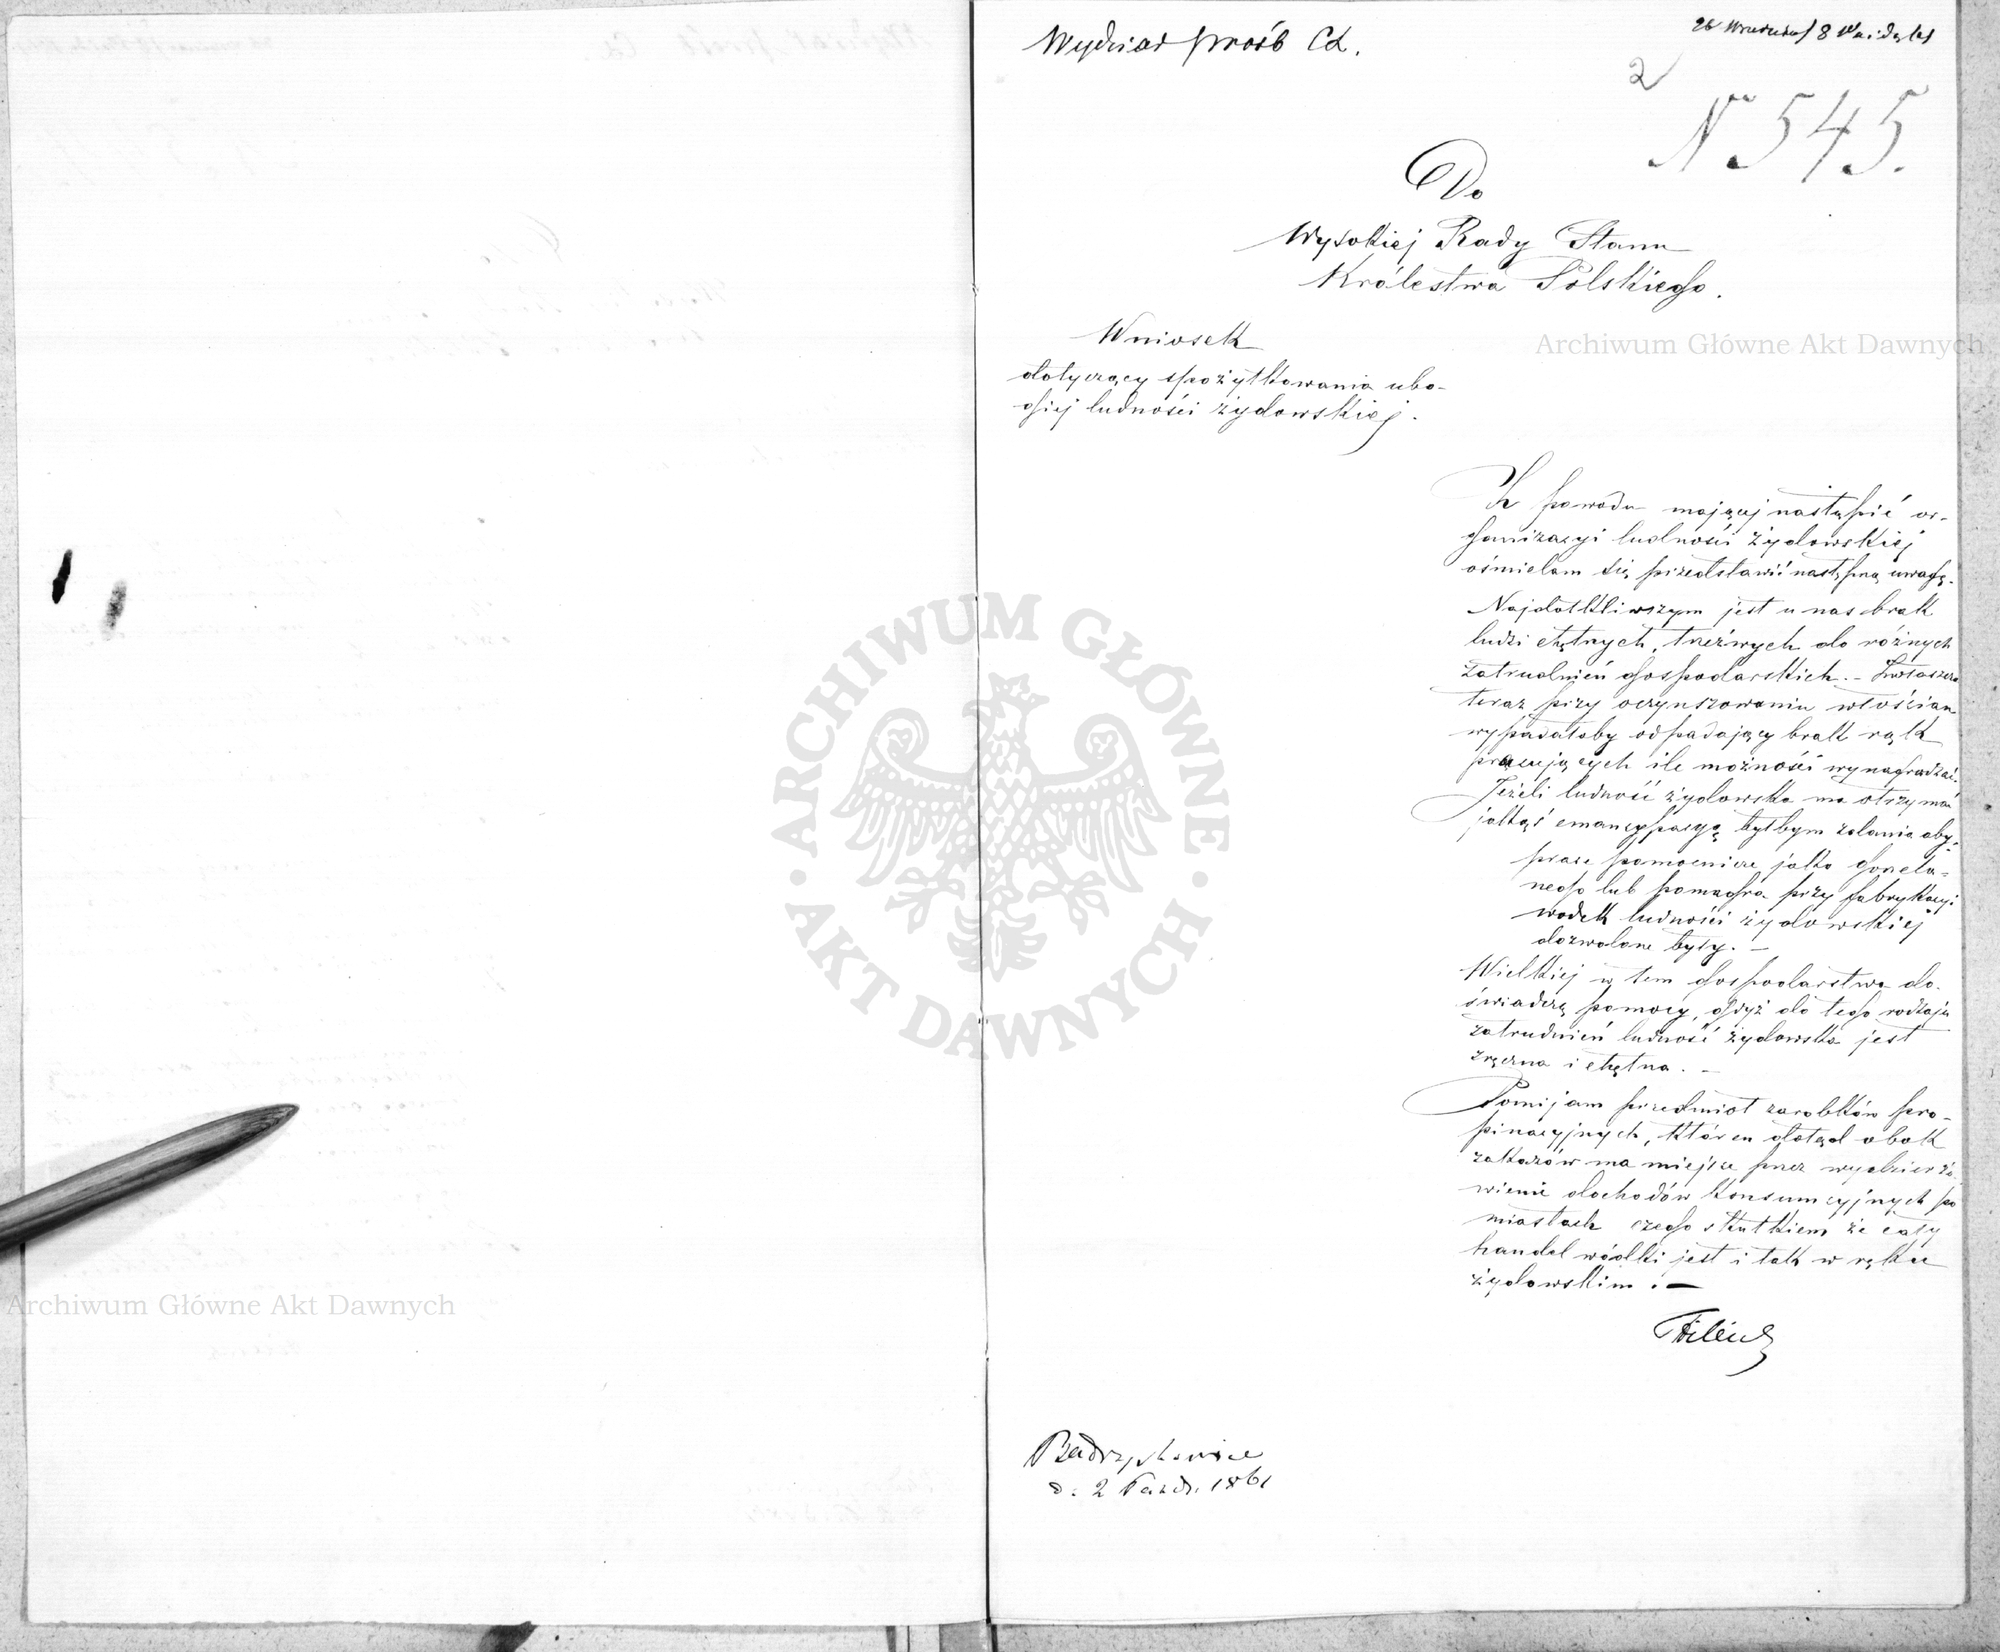 Wydział próśb Cd.
26 Września/8 Paźdz. 1861
2
N 545.
Do
Wysokiej Rady Stanu
Królestwa Polskiego.
Wniosek
dotyczący spożytkowania ubo-
giej ludności żydowskiej.
Z powodu mającej nastąpić or-
ganizacyi ludności żydowskiej
ośmielam się przedstawić nastęną uwagę.
Najdotkliwszym jest u nas brak
ludzi chętnych, trzeźwych do różnych
zatrudnień gospodarskich. - Zwłaszcza
teraz przy oczynszowaniu włościan
wypadałoby odpadający brak rąk
pracujących ile możności wynagradzać.
Jeżeli ludność żydowska ma otrzymać
jakąś emancypacyą byłbym zdania aby:
prace pomocnicze jako gorzela-
nego lub pomagra przy fabrykacyi
wódek ludności żydowskiej
dozwolone były. -
Wielkiej w tem gospodarstwa do-
świadczą pomocy, gdyż do tego rodzaju
zatrudnień ludność żydowska jest
zręczna i chętna. -
Pomijam przedmiot zarobków pro-
pinacyjnych, któren dotąd obok
zakazów ma miejsce przez wydzierża-
wienie dochodów konsumcyjnych po
miastach czego skutkiem że cały
handel wódki jest i tak w ręku
żydowskim. -
d. 2 Paźdr. 1861
Archiwum Główne Akt Dawnych
Archiwum Główne Akt Dawnych
ARCHIWUM GŁÓWNE
AKT DAWNYCH